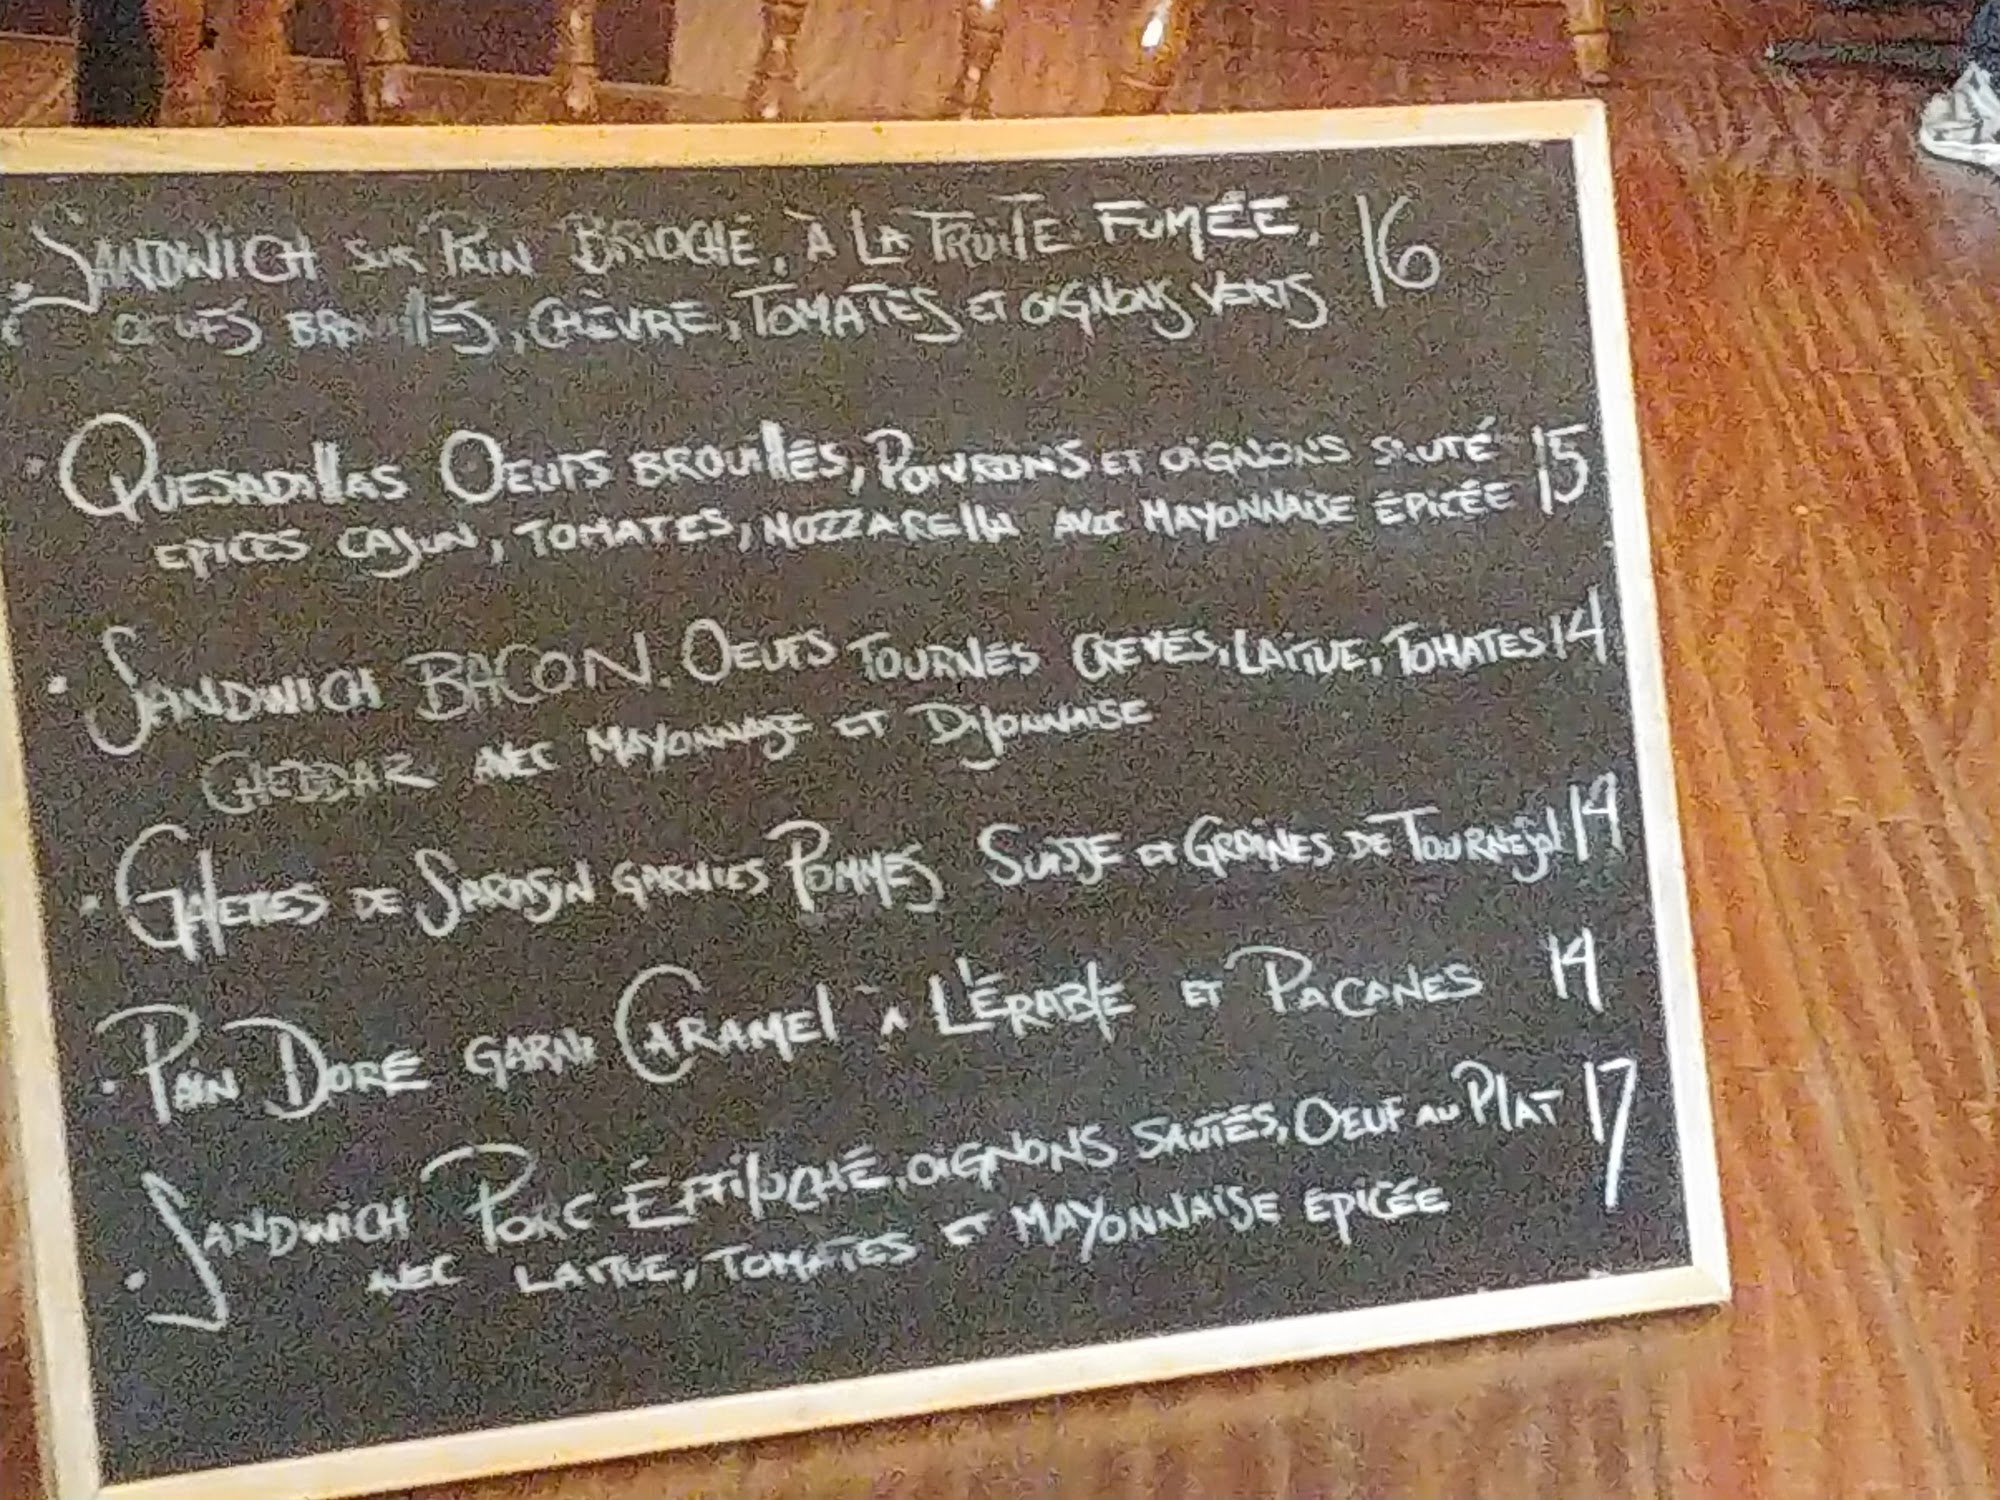 • SANDWICH SUR PAIN BRIOCHÉ, À LA TRUITE FUMÉE, 16
OEUFS BROUILLÉS, CHÈVRE, TOMATES ET OIGNONS VERTS
• QUESADILLAS OEUFS BROUILLÉS, POIVRONS ET OIGNONS SAUTÉ 15
EPICES CAJUN, TOMATES, MOZZARELLA AVEC MAYONNAISE ÉPICÉE
• SANDWICH BACON, OEUFS TOURNÉS CREVÉS, LAITUE, TOMATES 14
CHEDDAR AVEC MAYONNAISE ET DIJONNAISE
• GALETTES DE SARASIN GARNIES POMMES SUISSE ET GRAINES DE TOURNESOL 14
• PAIN DORÉ GARNI CARAMEL À L'ÉRABLE ET PACANES 14
• SANDWICH PORC ÉFFILOCHÉ, OIGNONS SAUTÉS, OEUF AU PLAT 17
AVEC LAITUE, TOMATES ET MAYONNAISE EPICÉE